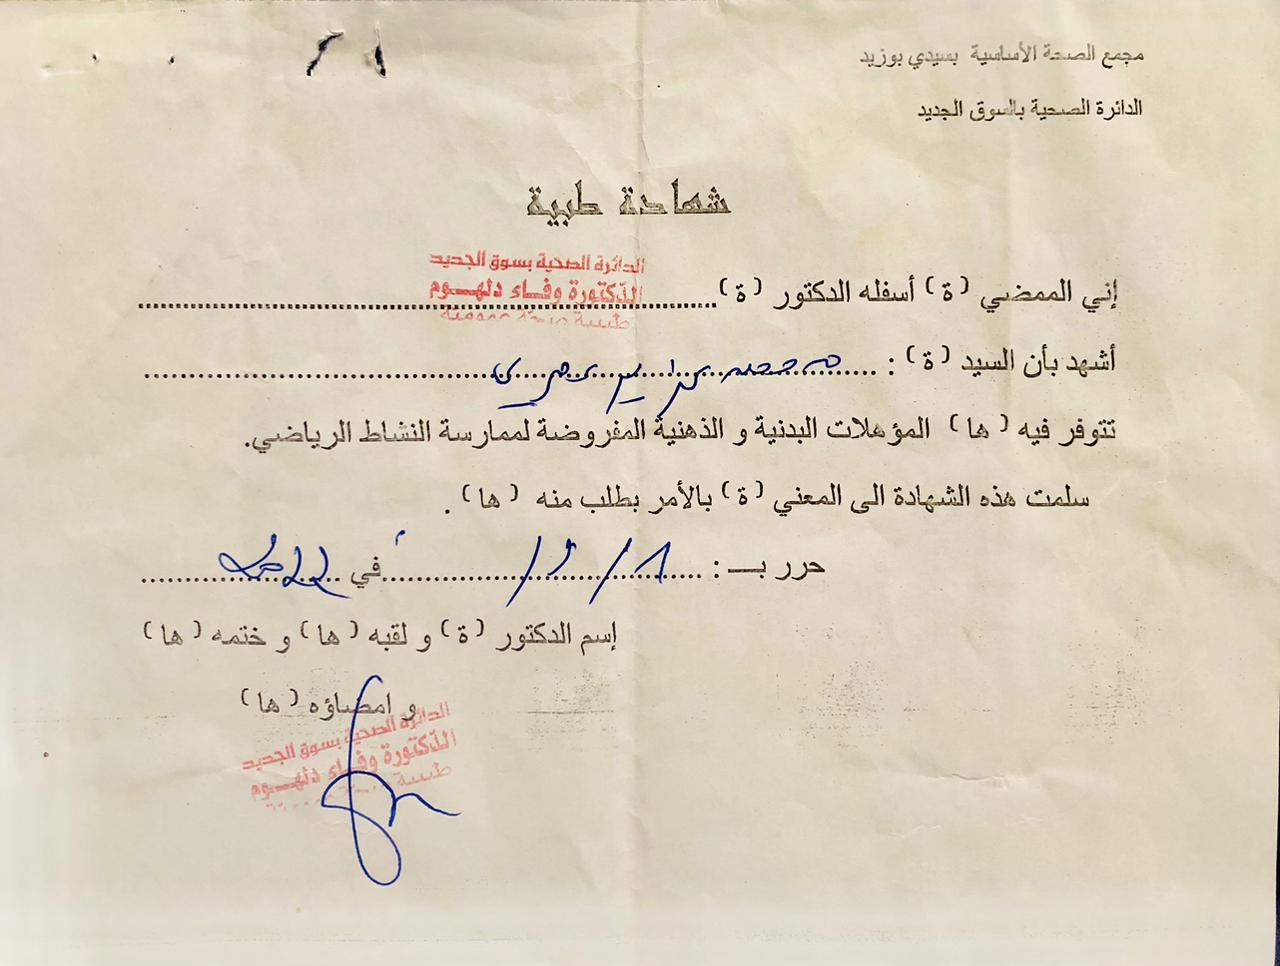 مجمع الصحة الأساسية بسيدي بوزيد
الدائرة الصحية بالسوق الجديد
شهادة طبية
الدائرة الصحية بسوق الجديد
الدكتورة وفاء دلهوم
طبيبة صحة عمومية
إني الممضي (ة) أسفله الدكتور (ة)
أشهد بأن السيد (ة) : محمد
تتوفر فيه (ها) المؤهلات البدنية و الذهنية المفروضة لممارسة النشاط الرياضي.
سلمت هذه الشهادة الى المعني (ة) بالأمر بطلب منه (ها) .
حرر بـ : في 2022
إسم الدكتور (ة) و لقبه (ها) و ختمه (ها)
و امضاؤه (ها)
الدائرة الصحية بسوق الجديد
الدكتورة وفاء دلهوم
طبيبة صحة عمومية